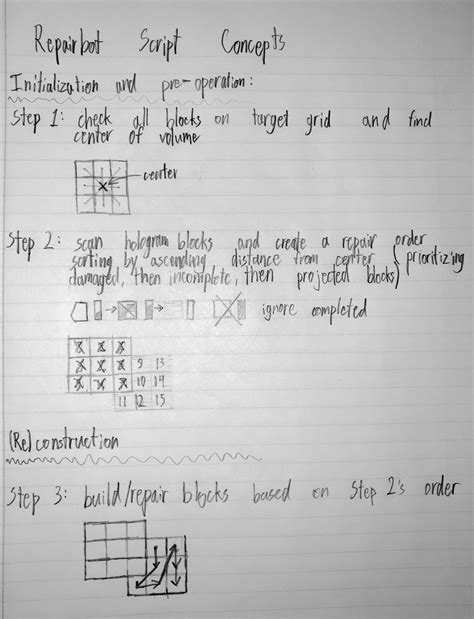 Repairbot Script Concepts
Initialization and pre-operation:
Step 1: check all blocks on target grid and find
center of volume
center
Step 2: scan hologram blocks and create a repair order
sorting by ascending distance from center (prioritizing
damaged, then incomplete, then projected blocks)
ignore completed
9 13
10 14
11 12 15
(Re)construction
Step 3: build/repair blocks based on Step 2's order